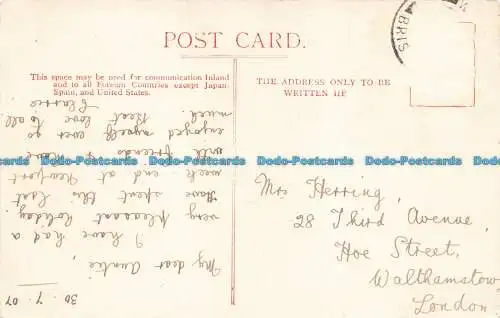 POST CARD.
This space may be used for communication Inland
and to all Foreign Countries except Japan,
Spain, and United States.
THE ADDRESS ONLY TO BE
WRITTEN HE
BRIS
30. 7. 07
My dear Auntie,
I have had a
very pleasant holiday.
Have spent this last
week end at Newport
with friends & have
enjoyed myself ever so
much. Best love to all.
Mrs Herring,
28 Third Avenue,
Hoe Street,
Walthamstow,
London
Dodo-Postcards Dodo-Postcards Dodo-Postcards Dodo-Postcards Dodo-Postcards